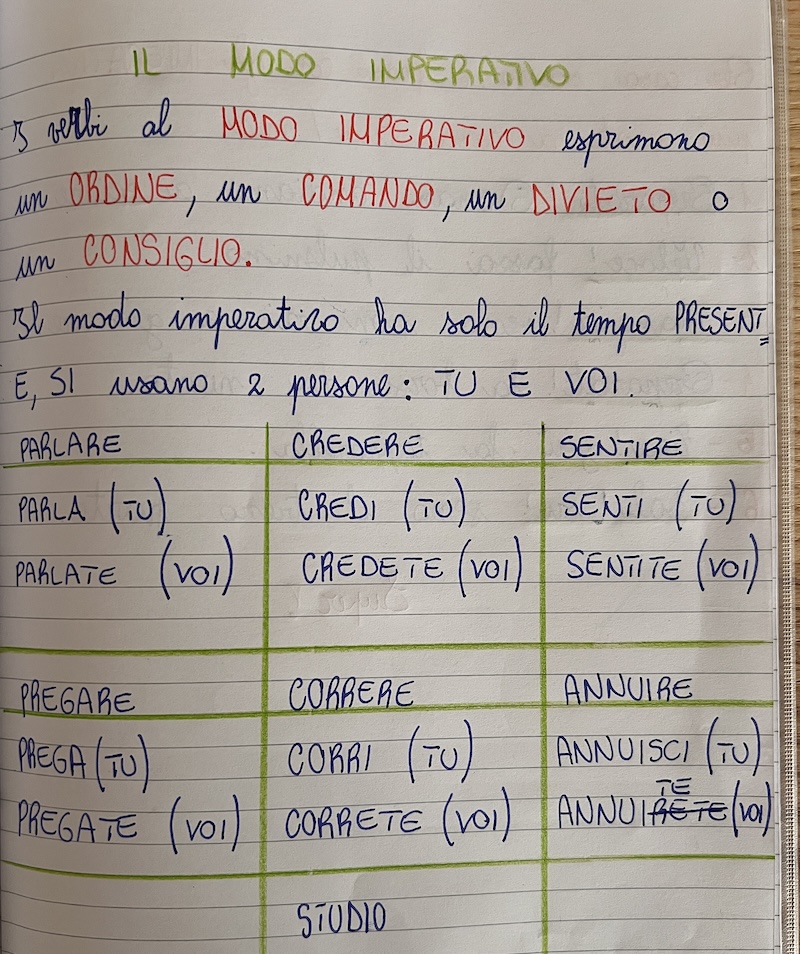 IL MODO IMPERATIVO
I verbi al MODO IMPERATIVO esprimono
un ORDINE, un COMANDO, un DIVIETO o
un CONSIGLIO.
Il modo imperativo ha solo il tempo PRESENT
E, SI usano 2 persone: TU E VOI.
PARLARE CREDERE SENTIRE
PARLA (TU) CREDI (TU) SENTI (TU)
PARLATE (VOI) CREDETE (VOI) SENTITE (VOI)
PREGARE CORRERE ANNUIRE
PREGA (TU) CORRI (TU) ANNUISCI (TU)
PREGATE (VOI) CORRETE (VOI) ANNUITE (VOI)
STUDIO